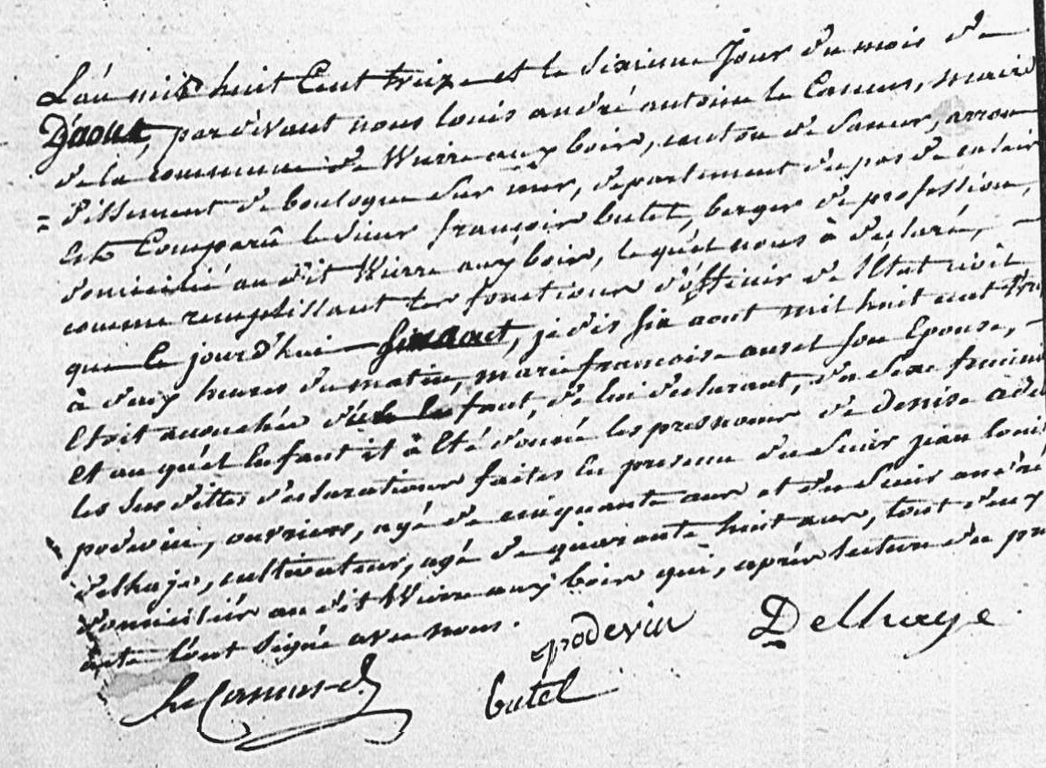 L'an mil huit Cent treize et le sixieme Jour du mois de
D'aout, pardevant nous louis andré antoine le Camus, maire
de la commune de Wirre aux bois, canton de Samer, arron
= dissement de boulogne Sur mer, departement du pas de calais
Est Comparû le sieur françois butel, berger de profession,
domicilié au dit Wirre aux bois, le quel nous à declaré,
comme remplissant les fonctions d'officier de l'Etat civil
que le jourd'hui aout, je dis six aout mil huit cent
à deux heures du matin, marie francoise auset son Epouse,
Etoit accouchée d'un Enfant, de lui declarant, du sexe feminin
et au quel Enfant il à Eté donné les prenoms de denise
les sus dittes declarations faites En presence du sieur jean louis
podevin, ouvrier, agé de cinquante ans et du sieur andré
delhaye, cultivateur, agé de quarante huit ans, tout deux
domiciliés au dit Wirre aux bois qui, après lecture du
acte l'ont signé avec nous.
podevin Delhaye
Le Camus butel